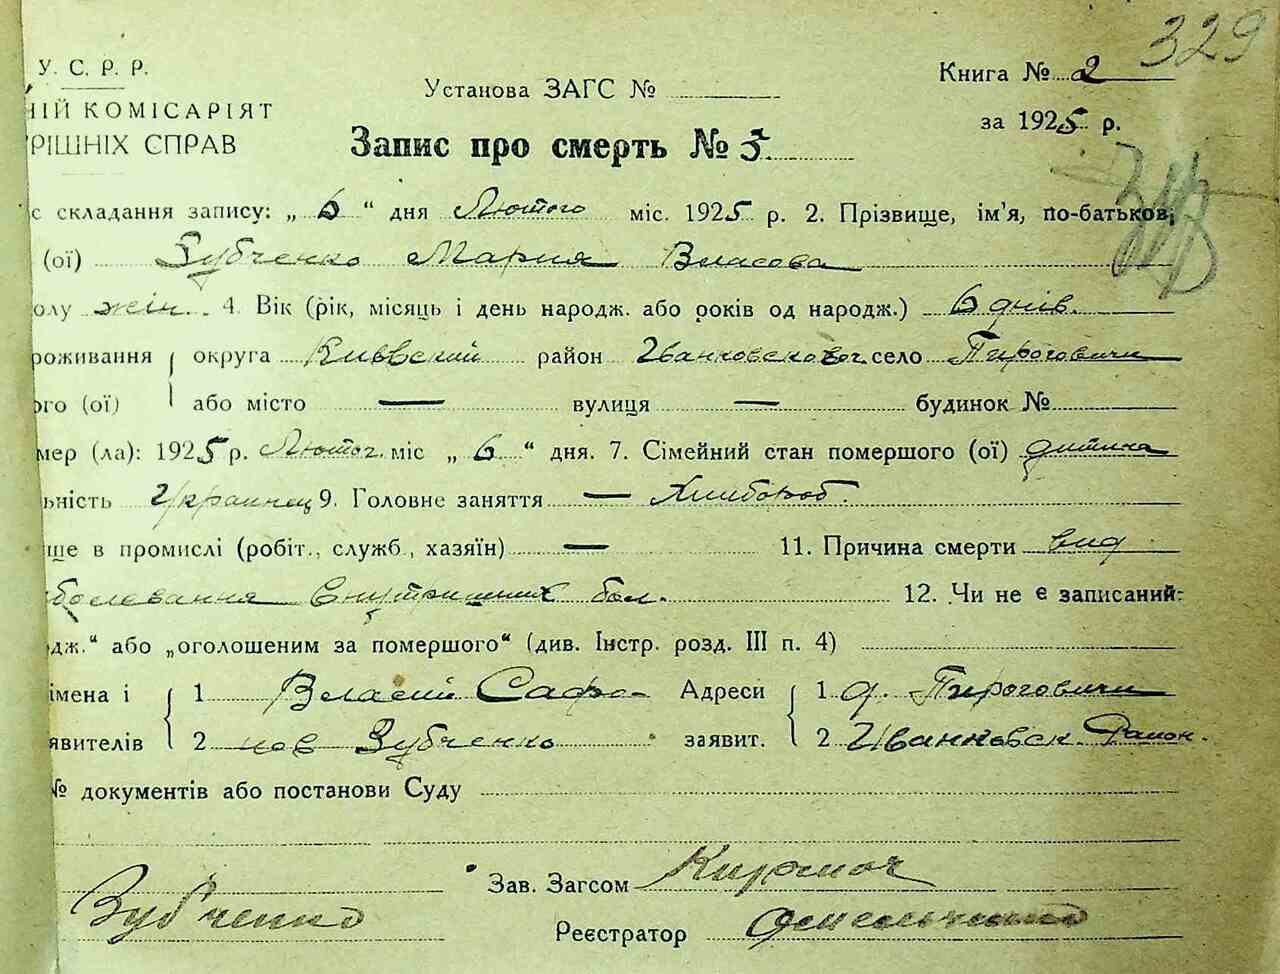 329
У. С. Р. Р.
Установа ЗАГС №
Книга № 2
НІЙ КОМІСАРІЯТ
за 1925 р.
РІШНІХ СПРАВ
Запис про смерть № 5
с складання запису: „ 6 “ дня Лютого міс. 1925 р. 2. Прізвище, ім'я, по-батькові
(ої) Зубченко Мария Власова
олу жін. 4. Вік (рік, місяць і день народж. або років од народж.) 6 днів.
роживання округа Киівский район Иванковского село Пироговичи
ого (ої) або місто — вулиця — будинок №
мер (ла): 1925 р. Лютог. міс „ 6 “ дня. 7. Сімейний стан помершого (ої) дитина
ьність Украинец 9. Головне заняття — Хлибороб.
ще в промислі (робіт., служб., хазяїн) — 11. Причина смерти вид
болевания внутришних бол. 12. Чи не є записаний:
дж.“ або „оголошеним за помершого“ (див. Інстр. розд. III п. 4)
імена і 1 Власий Сафро- Адреси 1 д. Пироговичи
явителів 2 нов Зубченко заявит. 2 Иванковск. Район.
№ документів або постанови Суду
Зав. Загсом
Зубченко
Реєстратор